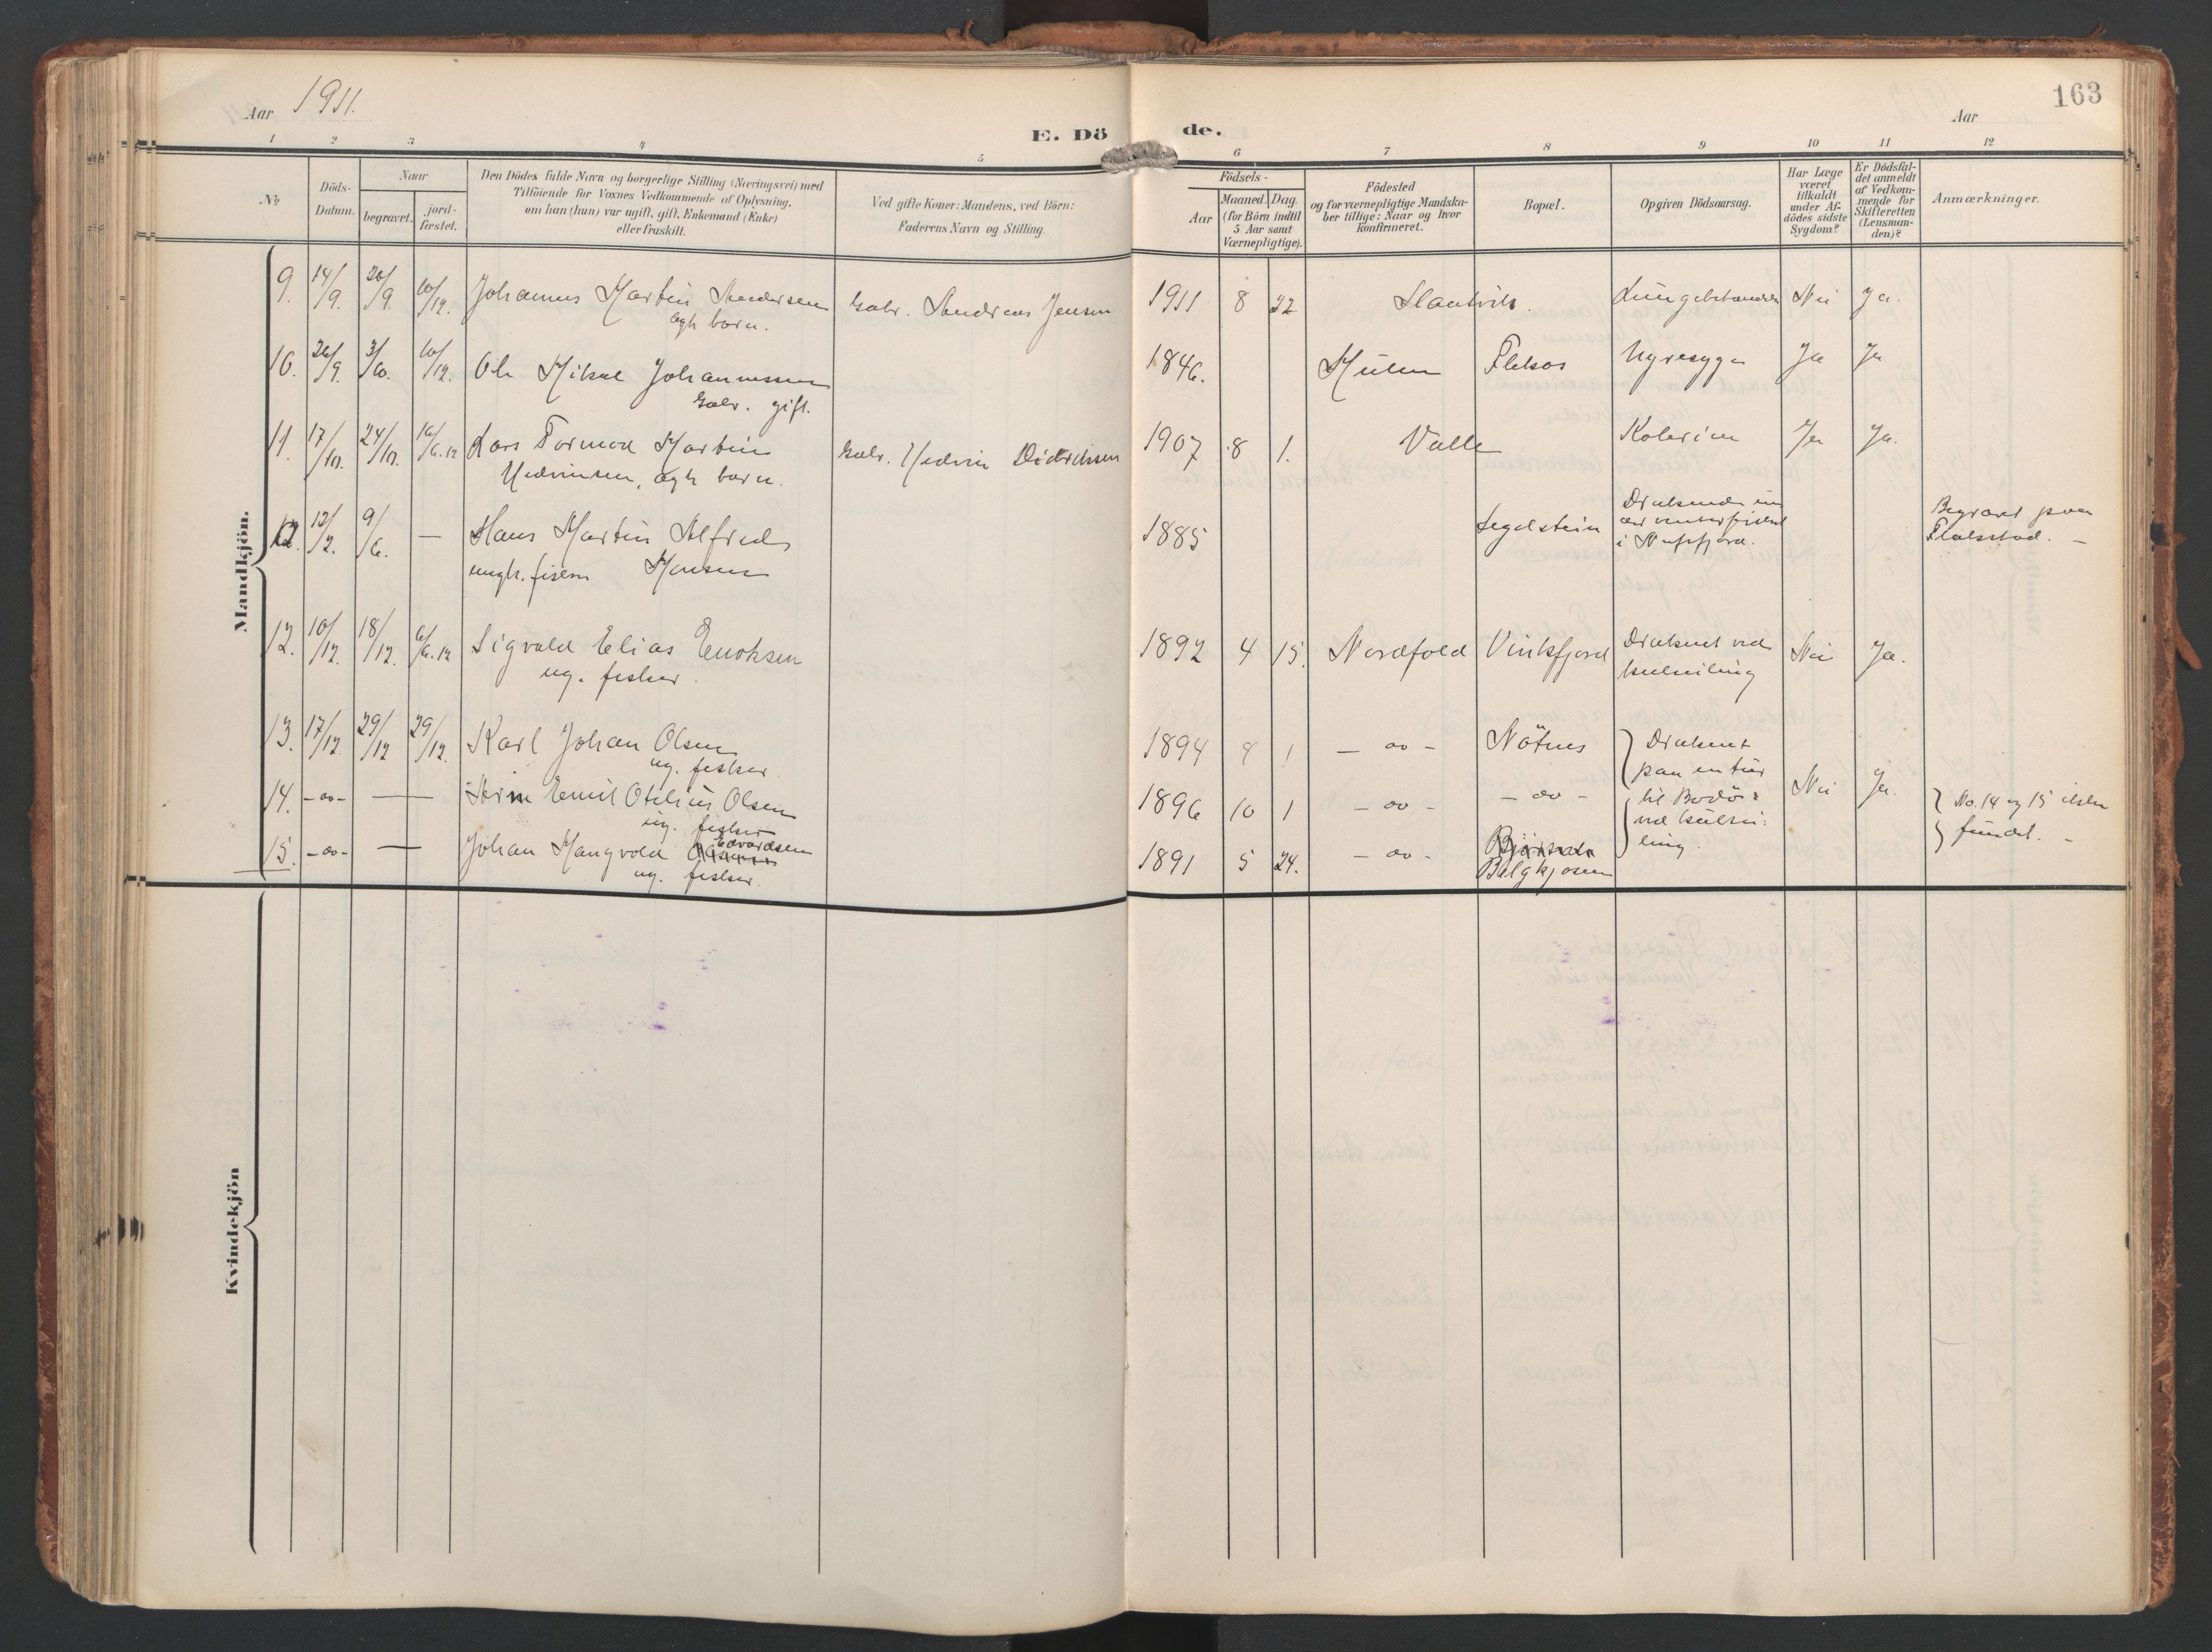 Aar 1911.
E. Döde.
Aar
163
1 2 3 4 5 6 7 8 9 10 11 12
№
Döds-Datum.
Naar
begravet.
jord-fæstet.
Den Dödes fulde Navn og borgerlige Stilling (Næringsvei) med
Tilföiende for Voxnes Vedkommende af Oplysning.
om han (hun) var ugift, gift, Enkemand (Enke)
eller fraskilt.
Ved gifte Koner: Mandens, ved Börn:
Faderens Navn og Stilling.
Födsels-
Aar
Maaned. Dag.
(for Börn indtil
5 Aar samt
Værnepligtige).
Födested
og for værnepligtige Mandska-
ber tillige: Naar og hvor
konfirmeret.
Bopæl.
Opgiven Dödsaarsag.
Har Læge
været
tilkaldt
under Af-
dödes sidste
Sygdom?
Er Dödsfal-
det anmeldt
af Vedkom-
mende for
Skifteretten
(Lensman-
den)?
Anmærkninger.
Mandkjön.
9. 14/9. 20/9. 10/12. Johannes Martin Andersen Gabr. Andreas Jensen 1911 8 22 Nei Ja.
ægte barn.
10. 26/9. 3/10. 10/12. Ole Mikal Johannessen 1846. Flekos Nyresyge Ja Ja
gift.
11. 17/10. 24/10. 16/6.12 Lars Tormod Martin Hedvin Didrichsen 1907 8 1. Valle Kolerine Ja Ja.
Hedvinsen, ægte barn.
12. 12/2. 9/6. — Hans Martin Alfred 1885 Segelstein Begravet paa
ungk. fisker Hansen i Flakstad. —
12. 10/12. 18/12. 6/6.12 Sigvald Elias Enoksen 1892 4 15. Nordfold Vinkfjord Druknet ved Nei Ja.
ug. fisker. kulseiling
13. 17/12. 29/12 29/12. Karl Johan Olsen 1894 1 — do — Nötnes Druknet
ug. fisker. paa en tur
14. — do — — Emil Otelius Olsen 1896 10 1 — do — — do — til Bodö: Nei Ja. No. 14 og 15 ikke
ug. fisker ved kulsei: fundet. —
15. — do — — Johan Hangvold Edvardsen 1891 5 24. — do — ling.
ug. fisker. Bælgkjosen
Kvindekjön